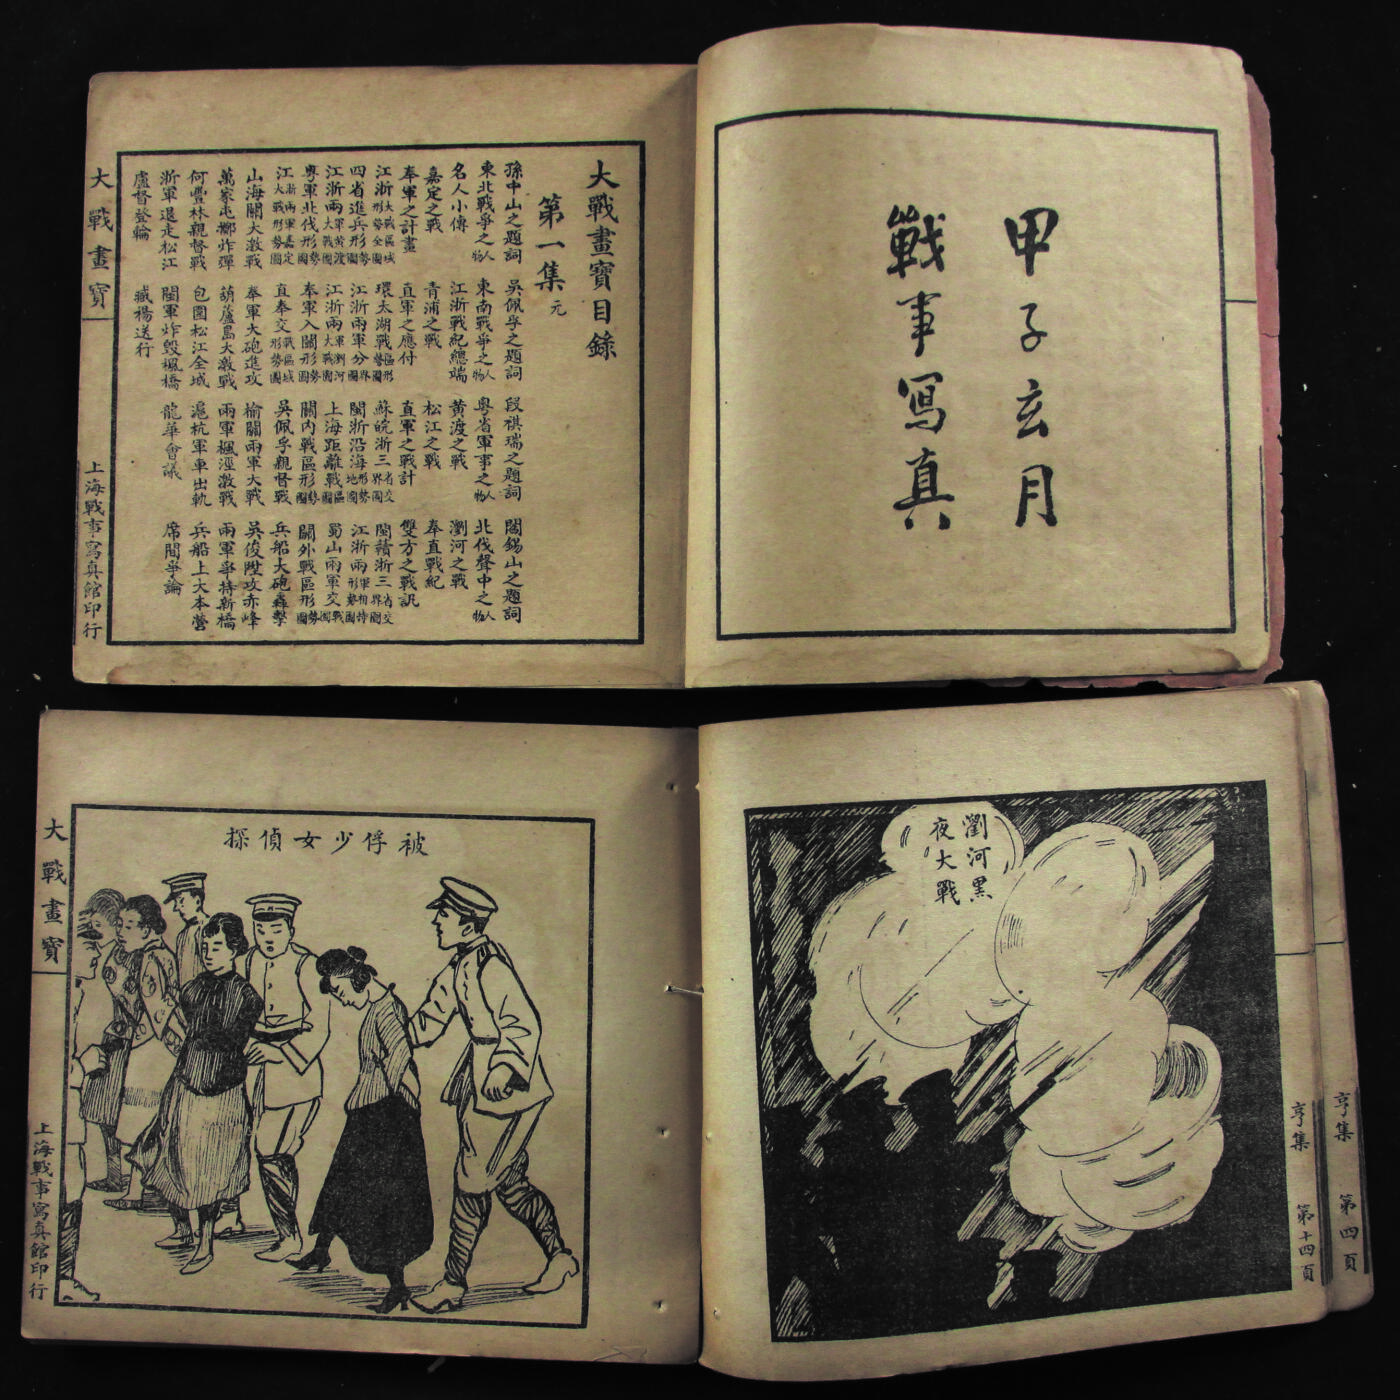 甲子玄月
戰事寫真
大戰畫寶目錄
第一集 元
孫中山之題詞 吳佩孚之題詞 段祺瑞之題詞 閻錫山之題詞
東北戰爭之人物 東南戰爭之人物 粵省軍事之人物 北伐聲中之人物
名人小傳 江浙戰紀總端 黃渡之戰 瀏河之戰
嘉定之戰 青浦之戰 松江之戰 奉直戰紀
奉軍之計畫 直軍之應付 直軍之戰計 雙方之戰訊
江浙大戰區域形勢全圖 環太湖戰區形勢圖 蘇皖浙三省交界圖 閩贛浙三省交界圖
四省進兵形勢圖 江浙兩軍分界圖 閩浙沿海形勢地圖 江浙兩軍相持形勢圖
江浙兩軍黃渡大戰圖 江浙兩軍瀏河大戰圖 上海距離戰區圖 蜀山兩軍交戰圖
粵軍北伐形勢圖 奉軍入關形勢圖 關內戰區形勢圖 關外戰區形勢圖
江浙兩軍嘉定大戰形勢圖 直奉交戰區域形勢圖 吳佩孚親督戰 兵船大砲轟擊
山海關大激戰 奉軍大砲進攻 榆關兩軍大戰 吳俊陞攻赤峰
萬家屯擲炸彈 葫蘆島大激戰 兩軍楓涇激戰 兩軍爭持新橋
何豐林親督戰 包圍松江全城 滬杭軍車出軌 兵船上大本營
浙軍退走松江 閩軍炸毀楓橋 龍華會議 席間爭論
盧督登輪 臧楊送行
大戰畫寶
上海戰事寫真館印行
瀏河黑
夜大戰
亨集 第十四頁
亨集 第四頁
被俘少女偵探
大戰畫寶
上海戰事寫真館印行